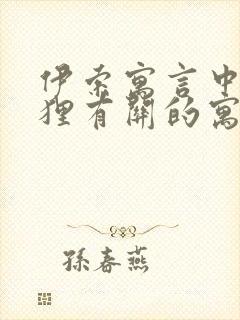 伊索寓言中
狸有關的寓
孫春燕